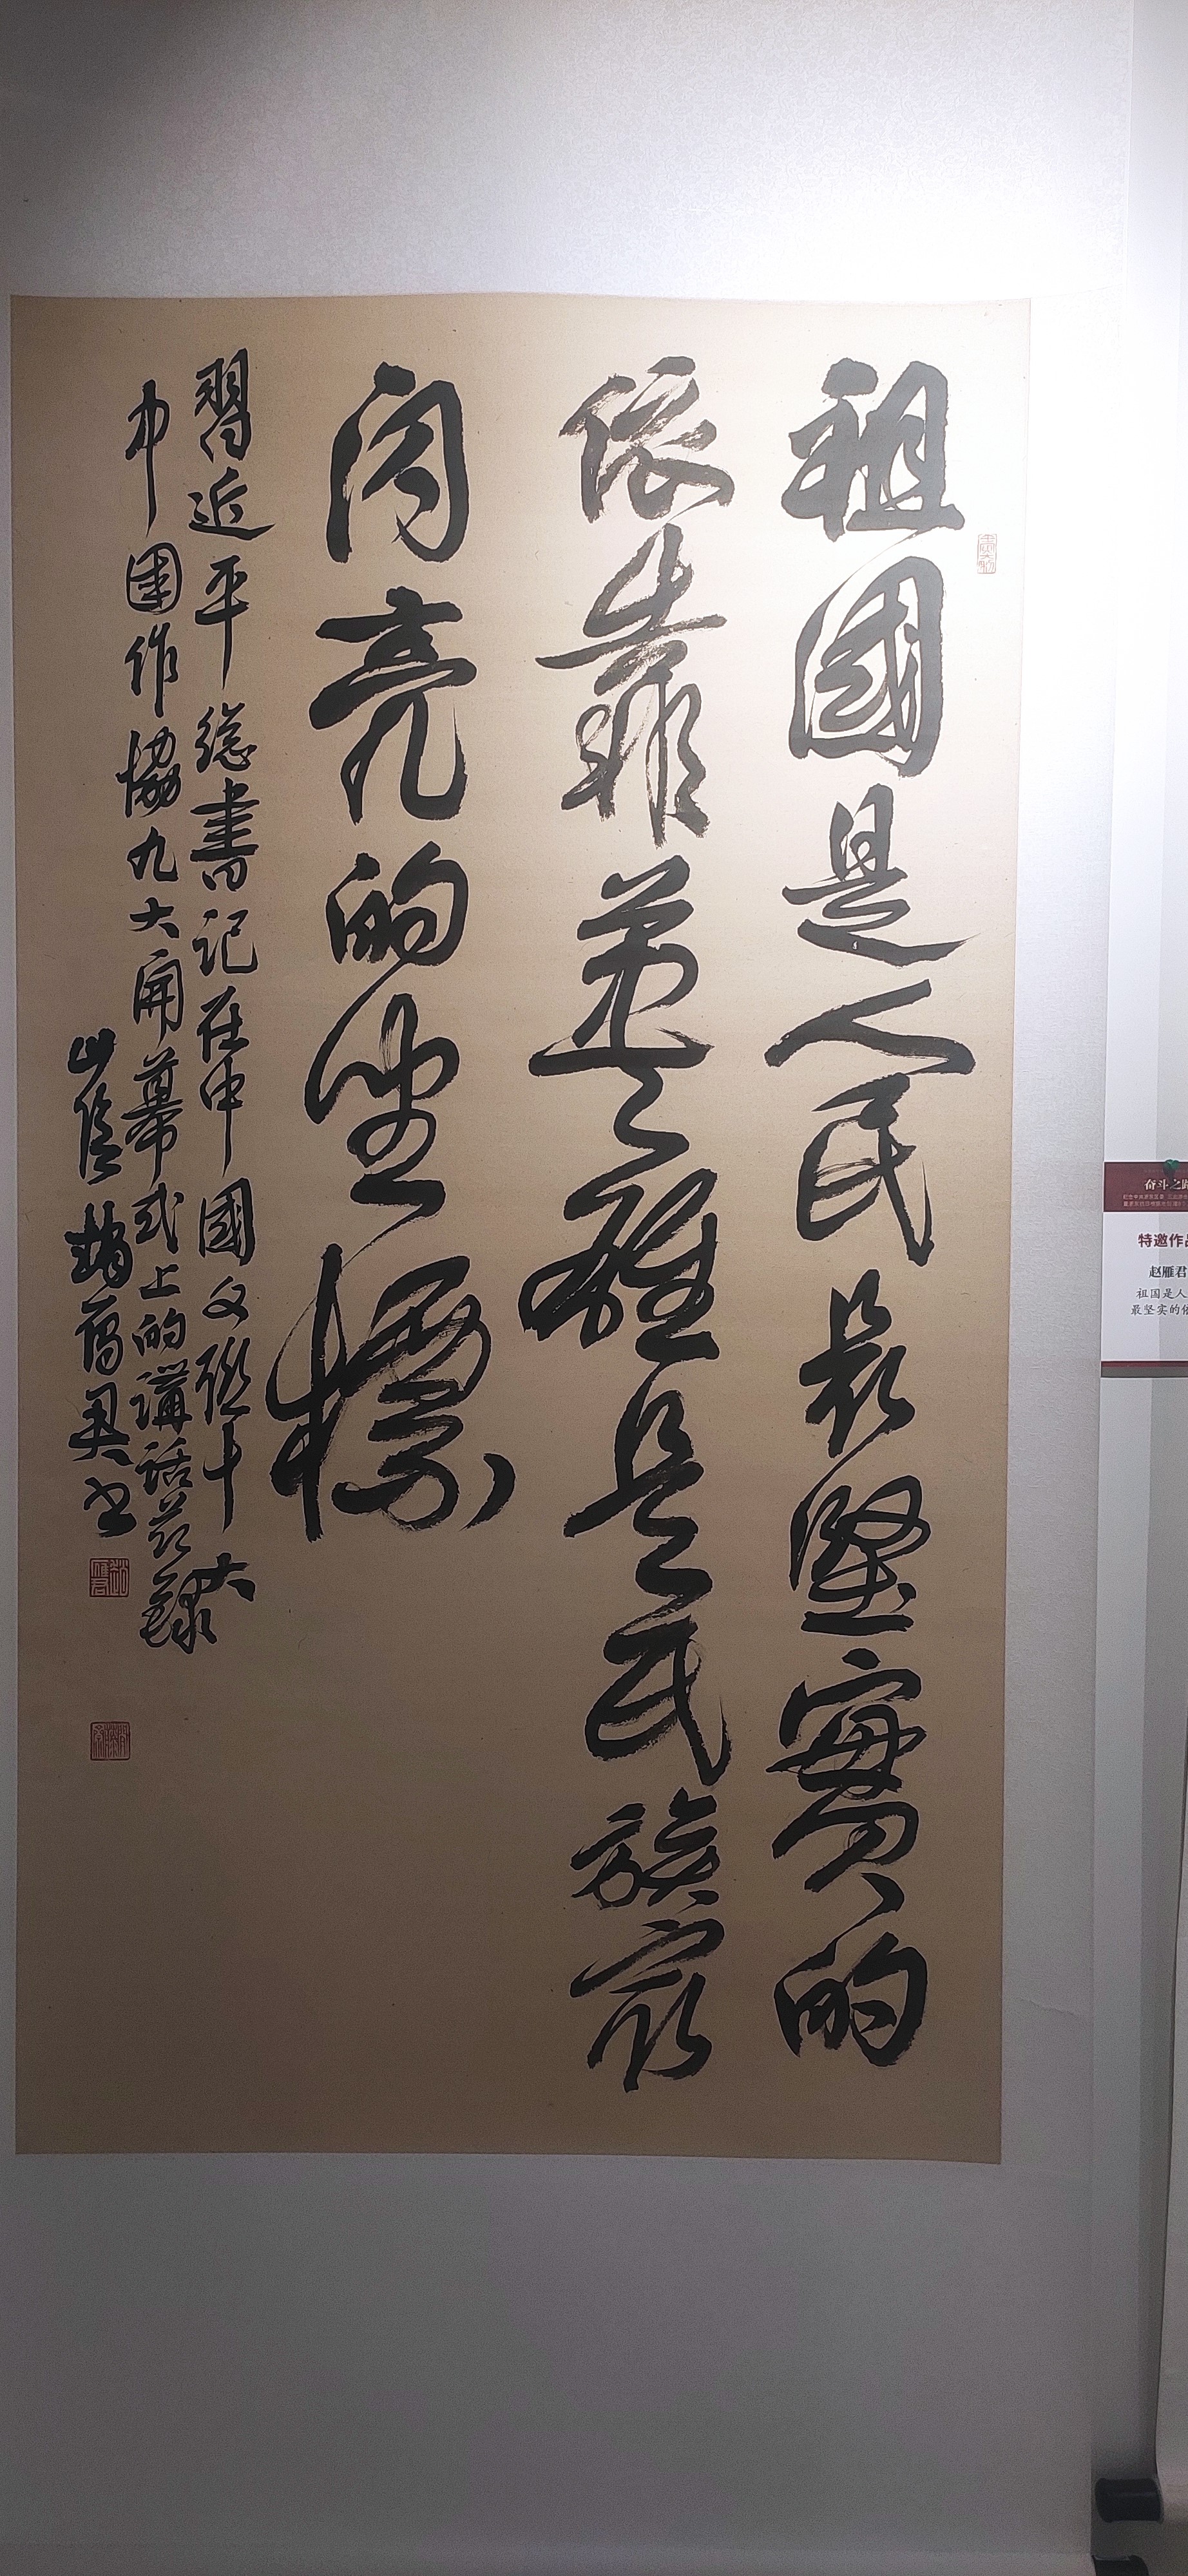 祖國是人民最堅實的
依靠英雄是民族最
闪亮的坐標
習近平總書记在中國文联十大
中國作協九大開幕式上的講話节録
趙雁君书
奋斗之路
特邀作品
赵雁君
祖国是人
最坚实的依